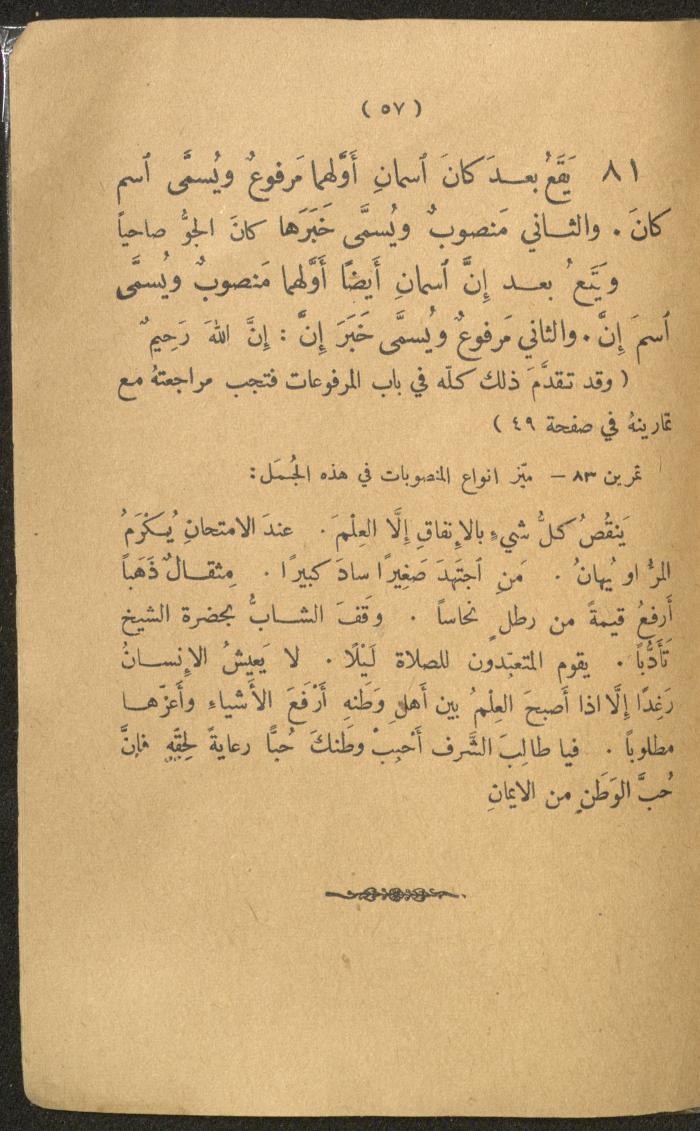 ( ٥٧ )
٨١ يَقَعُ بعـد كانَ ٱسمانِ أَوَّلهما مَرفوعٌ ويُسمَّى ٱسم
كانَ . والثـاني مَنصوبٌ ويُسمَّى خَبَرَها كانَ الجوُّ صاحياً
ويَقَع ُ بعـد إِنَّ ٱسمانِ أَيضًا أَوَّلهما مَنصوبٌ ويُسمَّى
ٱسمَ إِنَّ . والثاني مَرفوعٌ ويُسمَّى خَبَرَ إِنَّ : إِنَّ اللهَ رَحِيمٌ
( وقد تقدَّمَ ذلك كلّه في باب المرفوعات فتجب مراجعتهُ مع
تمارينهُ في صفحة ٤٩ )
تمرين ٨٣ – ميّز انواع المنصوبات في هذه الجُمَل :
يَنقُصُ كلُّ شيءٍ بالاِنفاقِ إِلَّا العِلْمَ . عندَ الامتحانِ يُكْرَمُ
المرُّ او يُهانُ . مَنِ ٱجتَهدَ صَغِيرًا سادَ كبيرًا . مِثقـالٌ ذَهَباً
أَرفعُ قيمةً من رطلٍ نحاساً . وَقَفَ الشـابُّ بحضرة الشيخ
تَأَدُّباً . يقوم المتعبّدون للصلاة لَيْلًا . لا يَعيشُ الاِنسـانُ
رَغِدًا إِلَّا اذا أَصبحَ العِلْمُ بين أَهلِ وَطَنهِ أَرْفَعَ الأَشياءِ وأَعزّهـا
مطلوباً . فيا طالِبَ الشَّرف أَحْبِبْ وطنكَ حُبًّا رعايةً لحِقّهِ فإنَّ
حُبَّ الوَطَنِ من الايمانِ